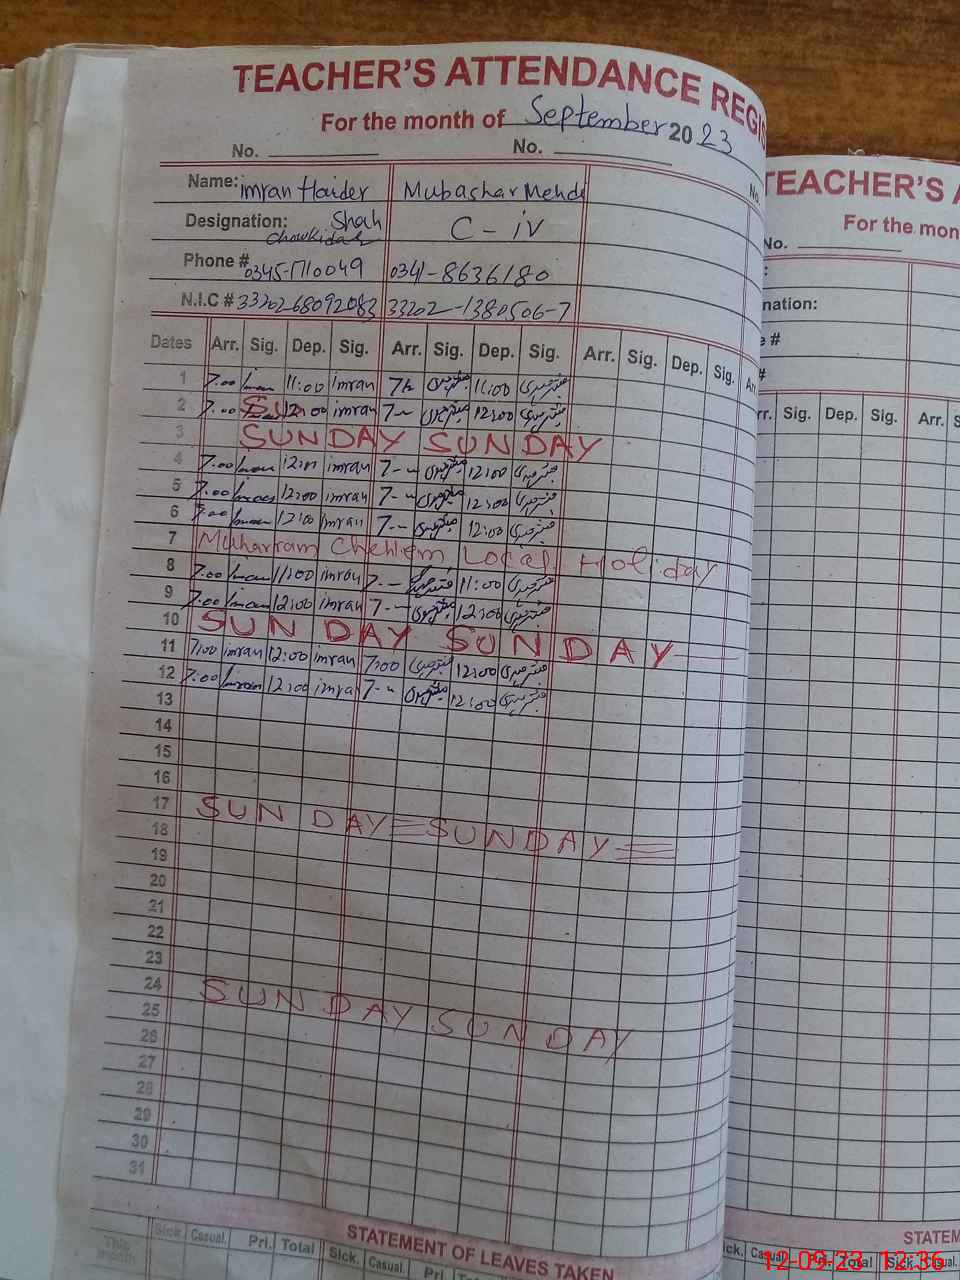 TEACHER'S ATTENDANCE REGIS
For the month of September 20 23
No. No.
Name: imran Haider Mubashar Mehdi No
Designation: Shah C - iv
Chowkidar
Phone # 0345-1710049 0341-8636180
N.I.C # 3320268092083 33202-1380506-7
Dates Arr. Sig. Dep. Sig. Arr. Sig. Dep. Sig. Arr. Sig. Dep. Sig. Arr
1 7.00 imran 11:00 imran 7 11:00
2 7.00 Sun 12:00 imran 7-- 12:00
3 SUNDAY SUNDAY
4 7.00 imran 12:00 imran 7-- 12:00
5 7.00 imran 12:00 imran 7-- 12:00
6 7.00 imran 12:00 imran 7-- 12:00
7 Muharram Chehlem Local Holiday
8 7.00 imran 11:00 imran 7-- 11:00
9 7.00 imran 12:00 imran 7-- 12:00
10 SUNDAY SUNDAY
11 7:00 imran 12:00 imran 7:00 12:00
12 7:00 imran 12:00 imran 7-- 12:00
13
14
15
16
17 SUNDAY SUNDAY
18
19
20
21
22
23
24 SUNDAY SUNDAY
25
26
27
28
29
30
31
STATEMENT OF LEAVES TAKEN
This month Sick. Casual. Pri. Total Sick. Casual. Pri. Total
TEACHER'S A
For the mon
No.
:
nation:
e #
#
rr. Sig. Dep. Sig. Arr. S
STATEM
ick. Casual. Pri. Total Sick. Casual.
12-09-23 12:36